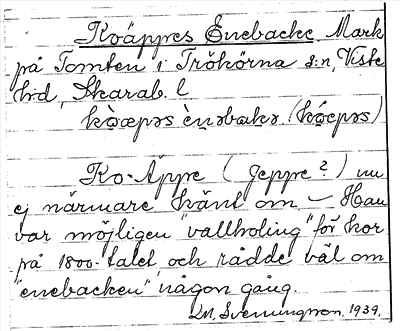 Koäppres Enebacke. Mark
på Tomten i Trökörna s:n, Viste
hd, Skarab. l
kò̤æpəs è̤nəbakə (kó̤æpəs)
Ko-Äppe (Jeppe?) nu
ej närmare känt om. – Han
var möjligen "vallholing" för kor
på 1800-talet, och rådde väl om
"enebacken" någon gång.
Lm. Svenungsson. 1939.